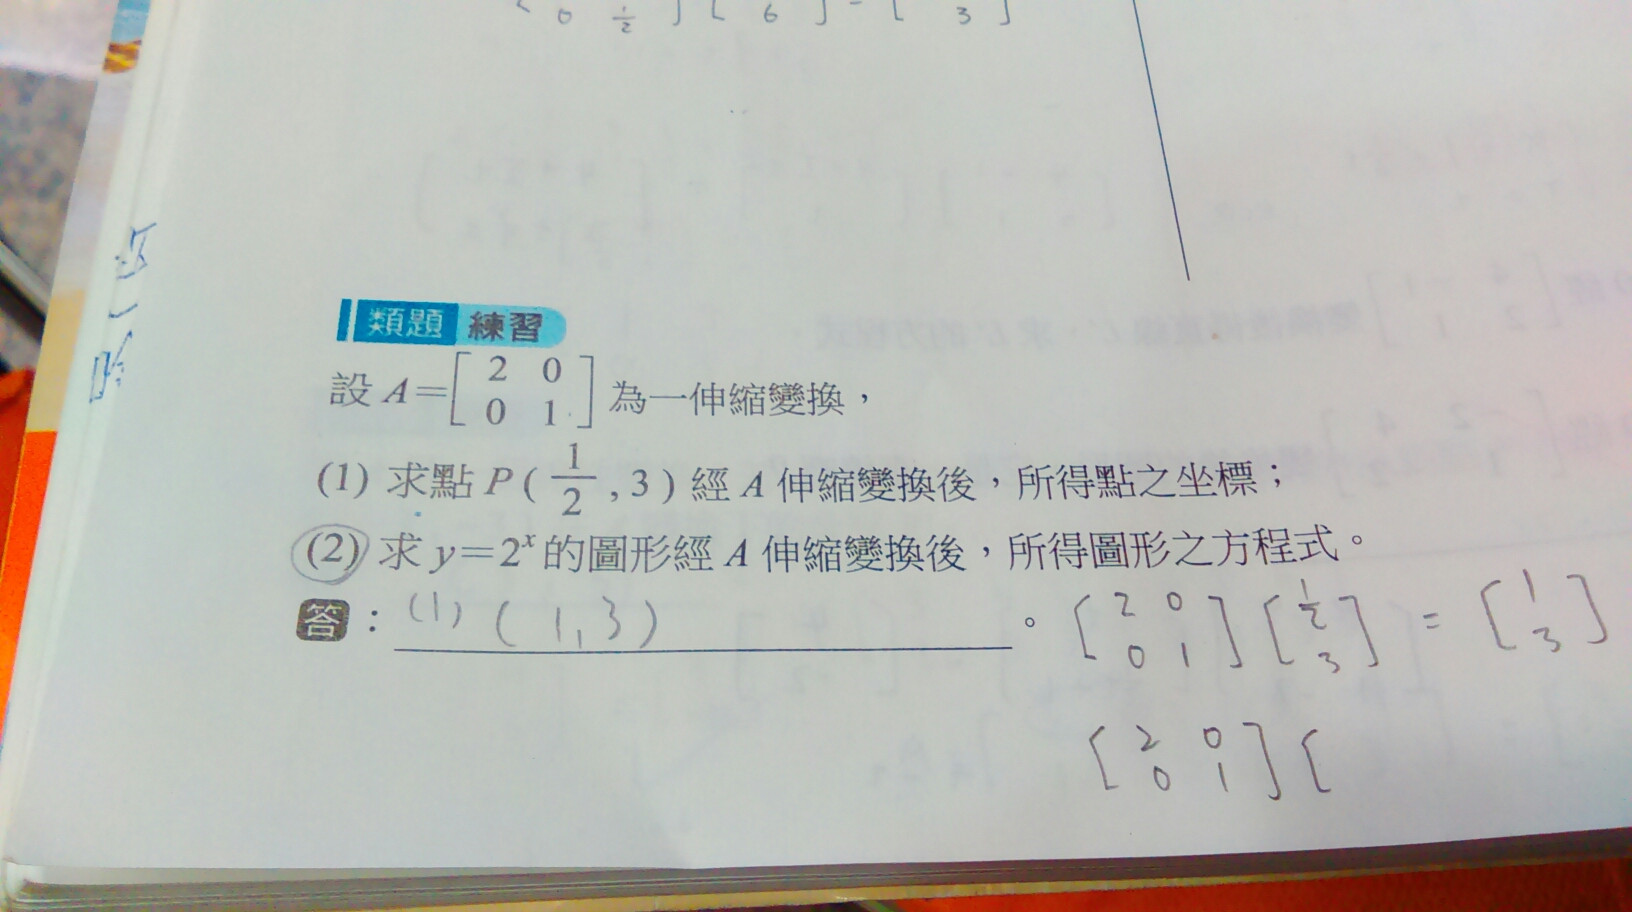 [ 0 1/2 ] [ 6 ] = [ 3 ]
類題 練習
設 A = [ 2 0 ; 0 1 ] 為一伸縮變換，
(1) 求點 P ( 1/2 , 3 ) 經 A 伸縮變換後，所得點之坐標；
(2) 求 y = 2^x 的圖形經 A 伸縮變換後，所得圖形之方程式。
答：(1) ( 1, 3 ) 。 [ 2 0 ; 0 1 ] [ 1/2 ; 3 ] = [ 1 ; 3 ]
[ 2 0 ; 0 1 ] [